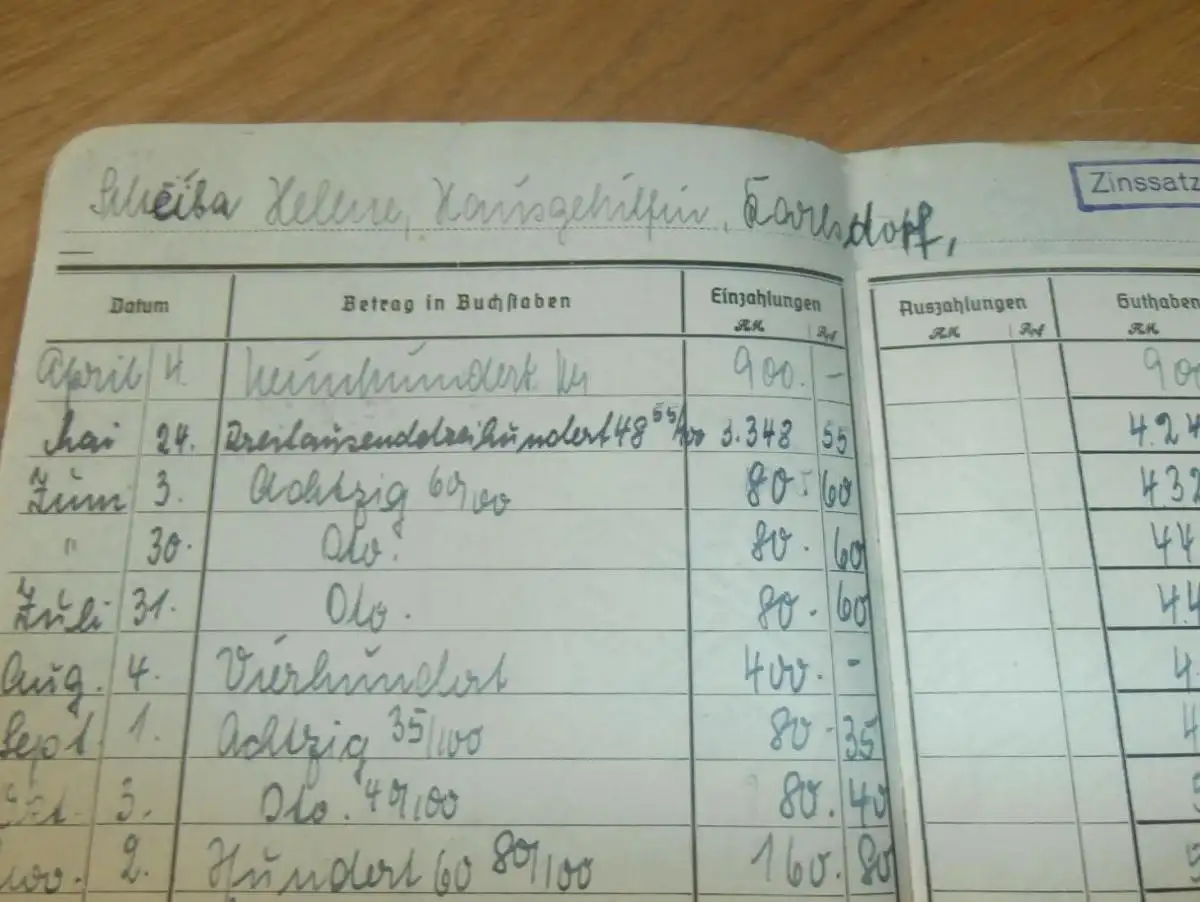 Scheiba Helene, Hausgehilfin, Karlsdorf,
Zinssatz
Datum Betrag in Buchstaben Einzahlungen Auszahlungen Guthaben
RM Rpf RM Rpf RM
April 4. Neunhundert 900. - 900
Mai 24. Dreitausenddreihundert48 55/100 3.348 55 4.24
Juni 3. Achtzig 60/00 80. 60 432
" 30. Dto. 80. 60 44
Juli 31. Dto. 80. 60 4.4
Aug. 4. Vierhundert 400. - 4.
Sept. 1. Achtzig 35/100 80. 35 4
Okt. 3. Dto. 40/100 80. 40 5
Nov. 2. Hundert 60 80/100 160. 80 5